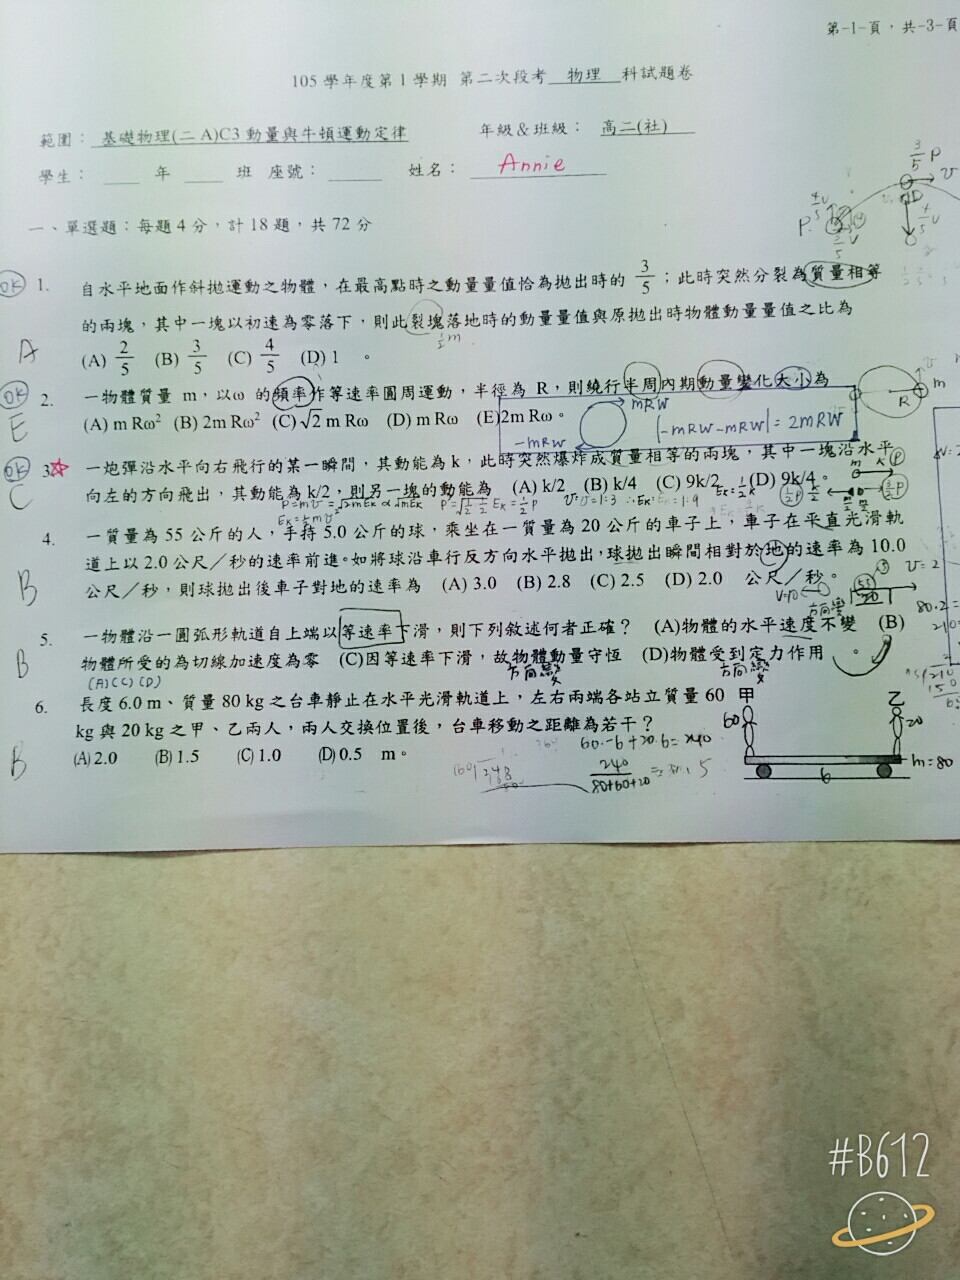 第-1-頁,共-3-頁
105 學年度第 1 學期 第二次段考 物理 科試題卷
範圍: 基礎物理(二 A)C3 動量與牛頓運動定律 年級&班級: 高二(社)
學生: ___ 年 ___ 班 座號: ___ 姓名: Annie
一、單選題:每題 4 分,計 18 題,共 72 分
OK 1. 自水平地面作斜拋運動之物體,在最高點時之動量量值恰為拋出時的 3/5;此時突然分裂為質量相等
的兩塊,其中一塊以初速為零落下,則此裂塊落地時的動量量值與原拋出時物體動量量值之比為
½m
A (A) 2/5 (B) 3/5 (C) 4/5 (D) 1 。
3/5 P
v
4/5 v
OK 2. 一物體質量 m,以ω 的頻率作等速率圓周運動,半徑為 R,則繞行半周內期動量變化大小為
E (A) m Rω² (B) 2m Rω² (C) √2 m Rω (D) m Rω (E)2m Rω。
mRW
-mRW
|-mRW-mRW| = 2mRW
R m
OK 3.☆ 一炮彈沿水平向右飛行的某一瞬間,其動能為 k,此時突然爆炸成質量相等的兩塊,其中一塊沿水平
C 向左的方向飛出,其動能為 k/2,則另一塊的動能為 (A) k/2 (B) k/4 (C) 9k/2 (D) 9k/4。
4. 一質量為 55 公斤的人,手持 5.0 公斤的球,乘坐在一質量為 20 公斤的車子上,車子在平直光滑軌
道上以 2.0 公尺/秒的速率前進。如將球沿車行反方向水平拋出,球拋出瞬間相對於地的速率為 10.0
B 公尺/秒,則球拋出後車子對地的速率為 (A) 3.0 (B) 2.8 (C) 2.5 (D) 2.0 公尺/秒。
V=10
55
20
v=2
5. 一物體沿一圓弧形軌道自上端以等速率下滑,則下列敘述何者正確? (A)物體的水平速度不變 (B)
方向變
B 物體所受的為切線加速度為零 (C)因等速率下滑,故物體動量守恆 (D)物體受到定力作用 。
(A)(C)(D) 方向變 方向變
6. 長度 6.0 m、質量 80 kg 之台車靜止在水平光滑軌道上,左右兩端各站立質量 60
kg 與 20 kg 之甲、乙兩人,兩人交換位置後,台車移動之距離為若干?
B (A) 2.0 (B) 1.5 (C) 1.0 (D) 0.5 m。
240
80+60+20
甲 乙
60 20
m=80
6
#B612